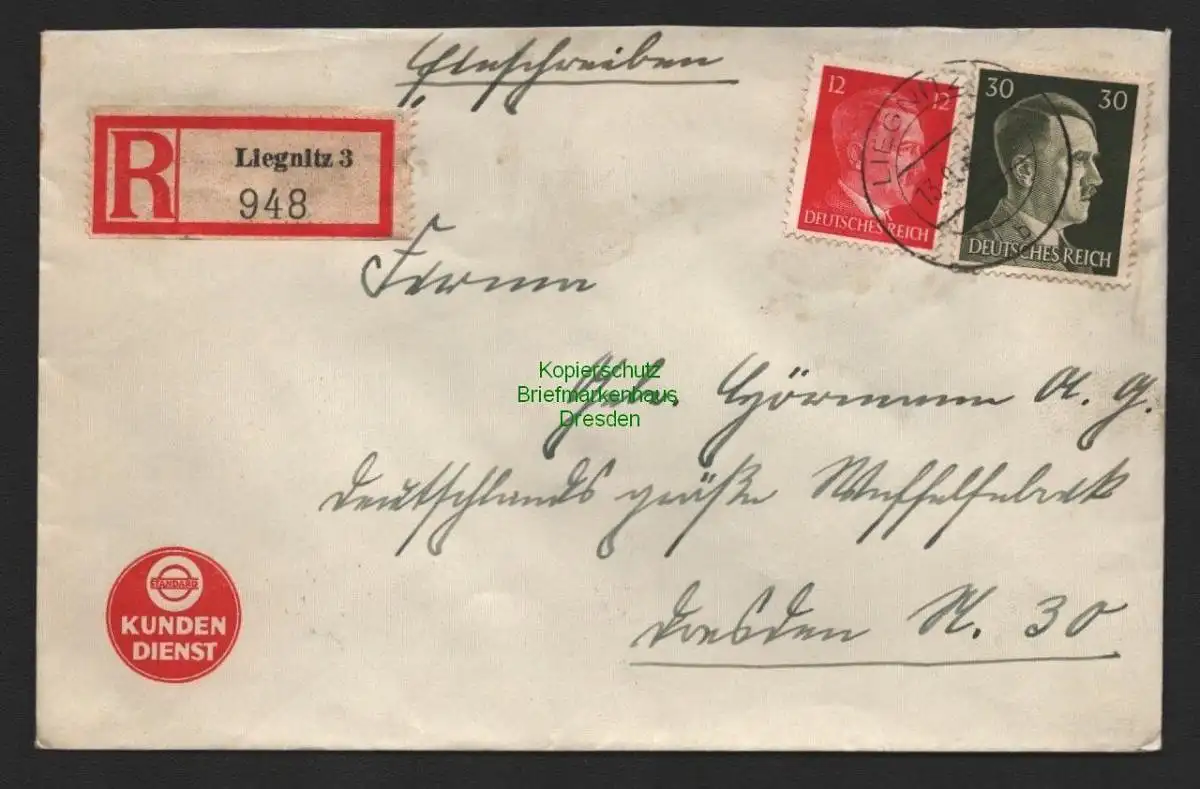 Einschreiben
R
Liegnitz 3
948
12 12
DEUTSCHES REICH
30 30
DEUTSCHES REICH
LIEGNITZ
13.9.
Firma
Kopierschutz
Briefmarkenhaus
Dresden
Gebr. Hörmann A. G.
Deutschlands größte Waffelfabrik
Dresden N. 30
STANDARD
KUNDEN
DIENST